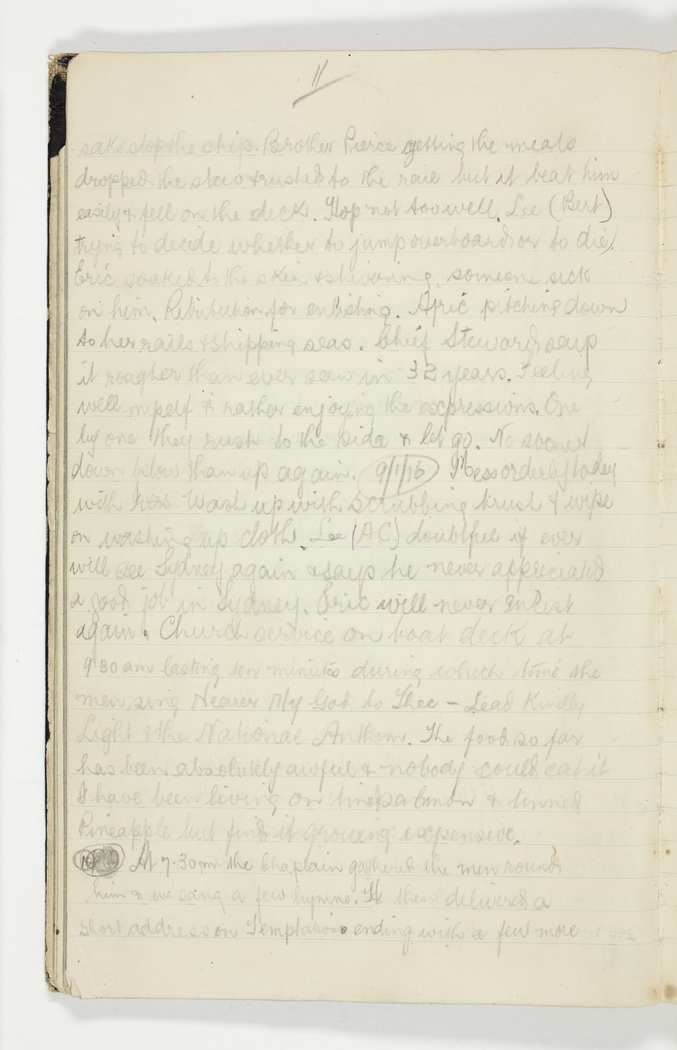 11
sake stop the ship. Brother Pierce getting the meals
dropped the stew & rushed to the rail but it beat him
easily & fell on the deck. Hop not too well. Lee (Bert)
trying to decide whether to jump overboard or to die.
Eric soaked to the skin & shivering, someone sick
on him. Retribution for enlisting. Afric pitching down
to her rails & shipping seas. Chief Steward says
it rougher than ever seen in 32 years. Feeling
well myself & rather enjoying the expressions. One
by one they rush to the side & let go. No sooner
down below than up again. 9/1/16 Mess orderly today
with Wash up with scrubbing brush & wipe
on washing up cloth. Lee (AC) doubtful if ever
will see Sydney again & says he never appreciated
a good job in Sydney. Eric will never enlist
again. Church service on boat deck at
9 30 am lasting ten minutes during which time the
men sing Nearer My God to Thee - Lead Kindly
Light & the National Anthem. The food so far
has been absolutely awful & nobody could eat it
I have been living on salmon & tinned
Pineapple but find it growing expensive.
At 7.30 pm the Chaplain gathered the men round
him & we sang a few hymns. He then delivered a
short address on Temptations ending with a few more